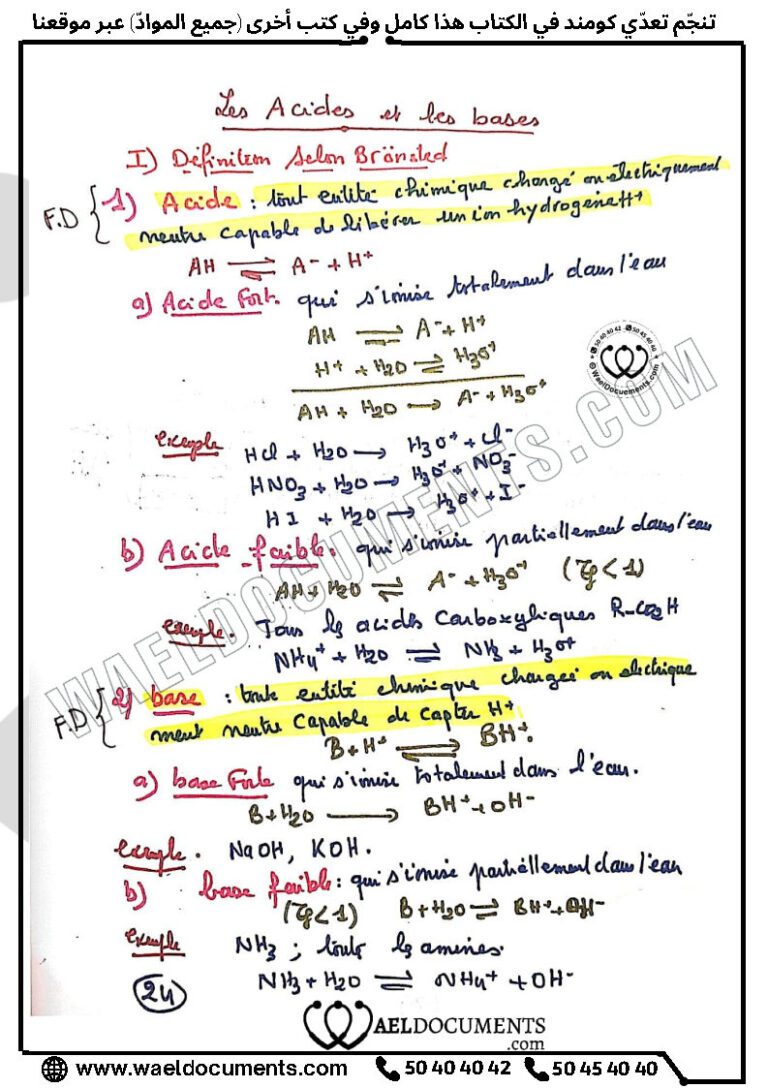 تنجّم تعدّي كومند في الكتاب هذا كامل وفي كتب أخرى (جميع الموادّ) عبر موقعنا
Les Acides et les bases
I) Définition Selon Brönsted
F.D { 1) Acide : tout entité chimique chargé ou électriquement
neutre capable de libérer un ion hydrogène H+
AH ⇌ A- + H+
a) Acide Fort. qui s'ionise totalement dans l'eau
AH ⇌ A- + H+
H+ + H2O ⇌ H3O+
AH + H2O → A- + H3O+
Exemple HCl + H2O → H3O+ + Cl-
HNO3 + H2O → H3O+ + NO3-
HI + H2O → H3O+ + I-
b) Acide faible. qui s'ionise partiellement dans l'eau
AH + H2O ⇌ A- + H3O+ (τf < 1)
Exemple. Tous les acides Carboxyliques R-CO2H
NH4+ + H2O ⇌ NH3 + H3O+
F.D { 2) base : toute entité chimique chargée ou électrique
ment neutre capable de capter H+
B + H+ ⇌ BH+.
a) base Forte qui s'ionise totalement dans l'eau.
B + H2O → BH+ + OH-
Exemple. NaOH, KOH.
b) base faible : qui s'ionise partiellement dans l'eau
(τf < 1) B + H2O ⇌ BH+ + OH-
Exemple NH3 ; toute les amines.
NH3 + H2O ⇌ NH4+ + OH-
24
WAELDOCUMENTS.COM
50 40 40 42 50 45 40 40
© WaelDocuements.com
AELDOCUMENTS
.com
www.waeldocuments.com 50 40 40 42 50 45 40 40